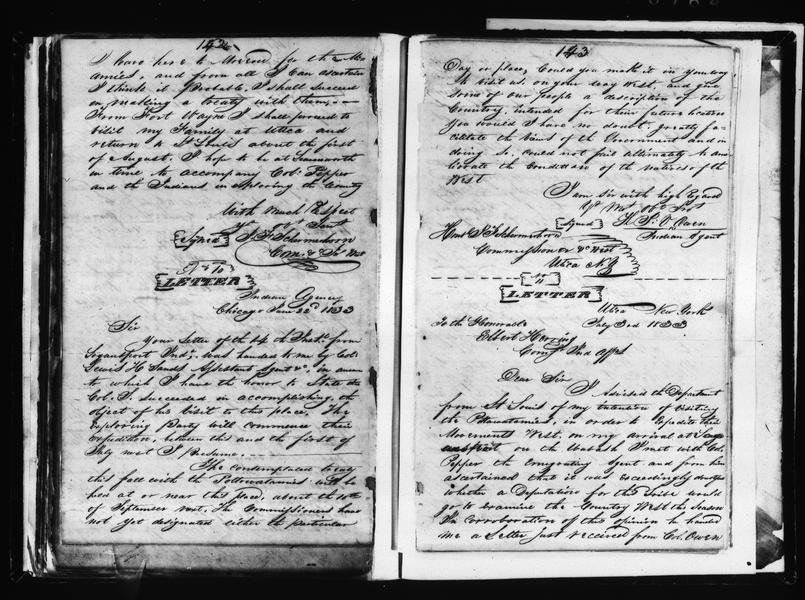 142
I have here to Morrow for the Mi-
amies, and from all I can ascertain
I think it Probable, I shall succeed
in making a treaty with them, —
From Fort Wayne I shall proceed to
visit my Family at Utica and
return to St Louis about the first
of August. I hope to be at
in time to accompany Col. Pepper
and the Indians in exploring the Country
With Much Respect
Yr Obt Servt
Signed J F Schermerhorn
Com. &c Ind West
No 10
LETTER
Indian Agency
Chicago June 22d 1833
Sir
Your Letter of the 14th Inst. from
Logansport Ind. was handed to me by Col.
Lewis H Sands Assistant Agent &c. in answer
to which I have the honor to State the
Col. P. succeeded in accomplishing the
object of his visit to this place, The
exploring Party will commence their
expedition, between this and the first of
July next I Presume. —
The contemplated treaty
this fall with the Pottowatamies will be
held at or near this place, about the 10th
of September next, The Commissioners have
not yet designated either the particular
143
Day or place, Could you make it in your way
to visit us on your way West, and give
some of our people a description of the
Country, intended for their future location
you would I have no doubt, greatly fa-
cilitate the views of the Government and in
doing so, could not fail ultimately to ame-
liorate the condition of the natives of the
West
I am Sir with high Regard
Yr Mo Obt Sert
Signed Th. J. V. Owen
Indian Agent
Honl J F Schermerhorn
Commissioner &c West
Utica N Y
No 11
LETTER
Utica New York
July 3rd 1833
To the Honorable
Elbert Herring
Comr Ind Affrs
Dear Sir
I Advised the Department
from St Louis of my intention of visiting
the Pottawatamies, in order to Expedite their
Movements West, on my arrival at Logan
on the Wabash I met with Col.
Pepper the emigrating Agent and from him
ascertained that it was exceedingly doubtful
whether a Deputation for the Tribe would
go to examine the Country West this Season
In corroboration of this opinion he handed
me a Letter just received from Col. Owen